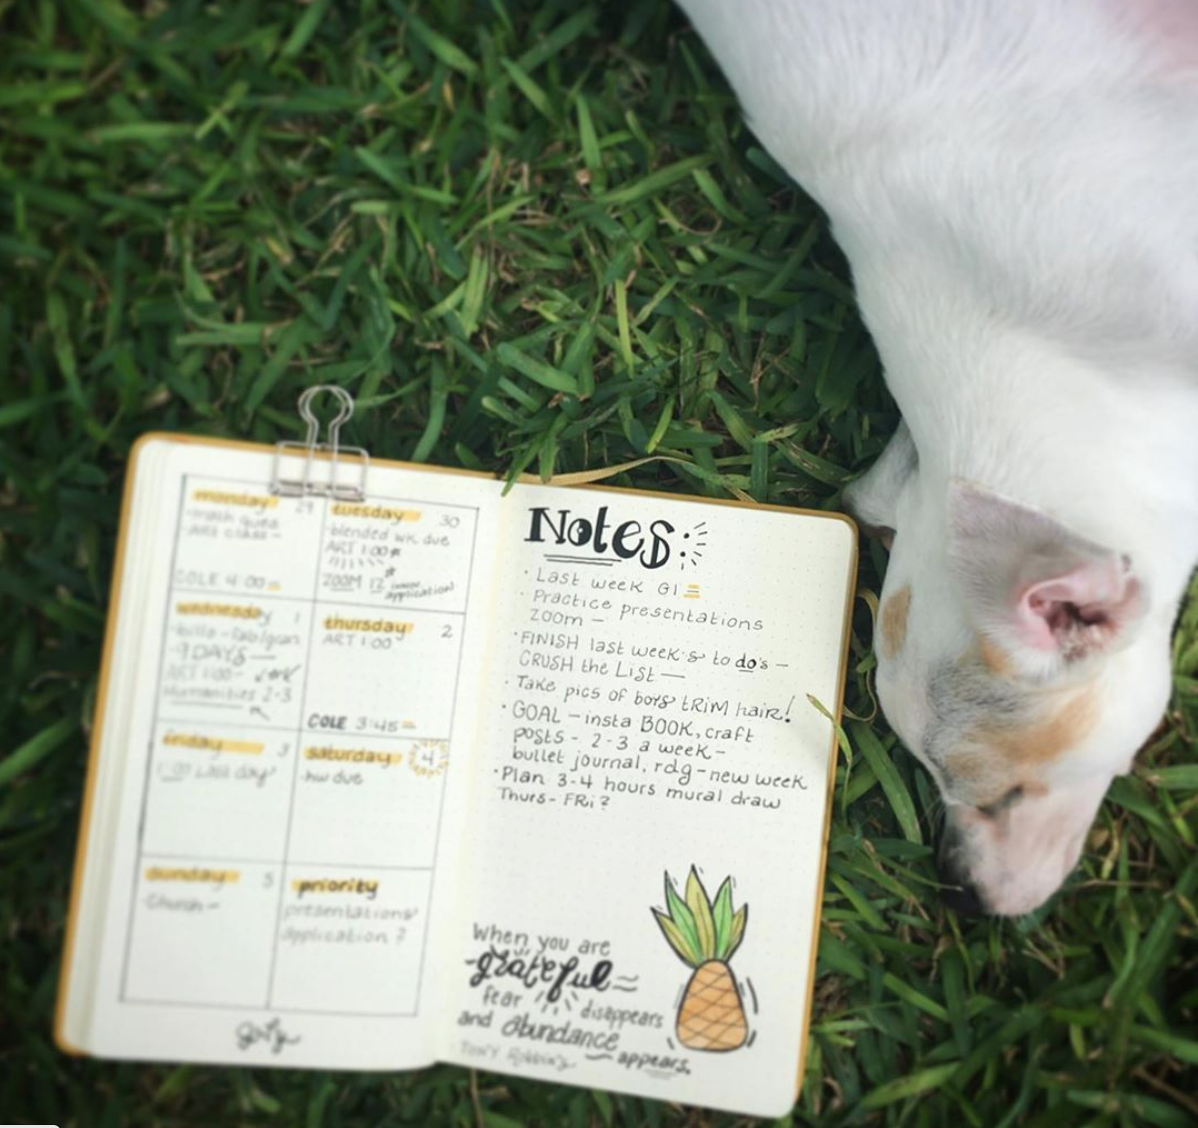 monday 29
math quiz
COLE 4:00
tuesday 30
blended wk due
ART 1:00
ZOOM 12
application)
wednesday 1
9 DAYS —
ART 1:00 -
Humanities 2-3
thursday 2
ART 1:00
COLE 3:45
friday 3
1:00 Last day
saturday 4
hw due
sunday 5
church -
priority
presentations
application?
Notes
· Last week GI
· Practice presentations
zoom -
· FINISH last week's to do's -
CRUSH the LiSt —
· Take pics of boys tRiM hair!
· GOAL - insta BOOK, craft
posts - 2-3 a week -
bullet journal, rdg - new week
· Plan 3-4 hours mural draw
Thurs - FRi?
When you are
grateful
fear disappears
and abundance
appears.
Tony Robbins